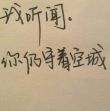 我听闻。
你仍守着空城